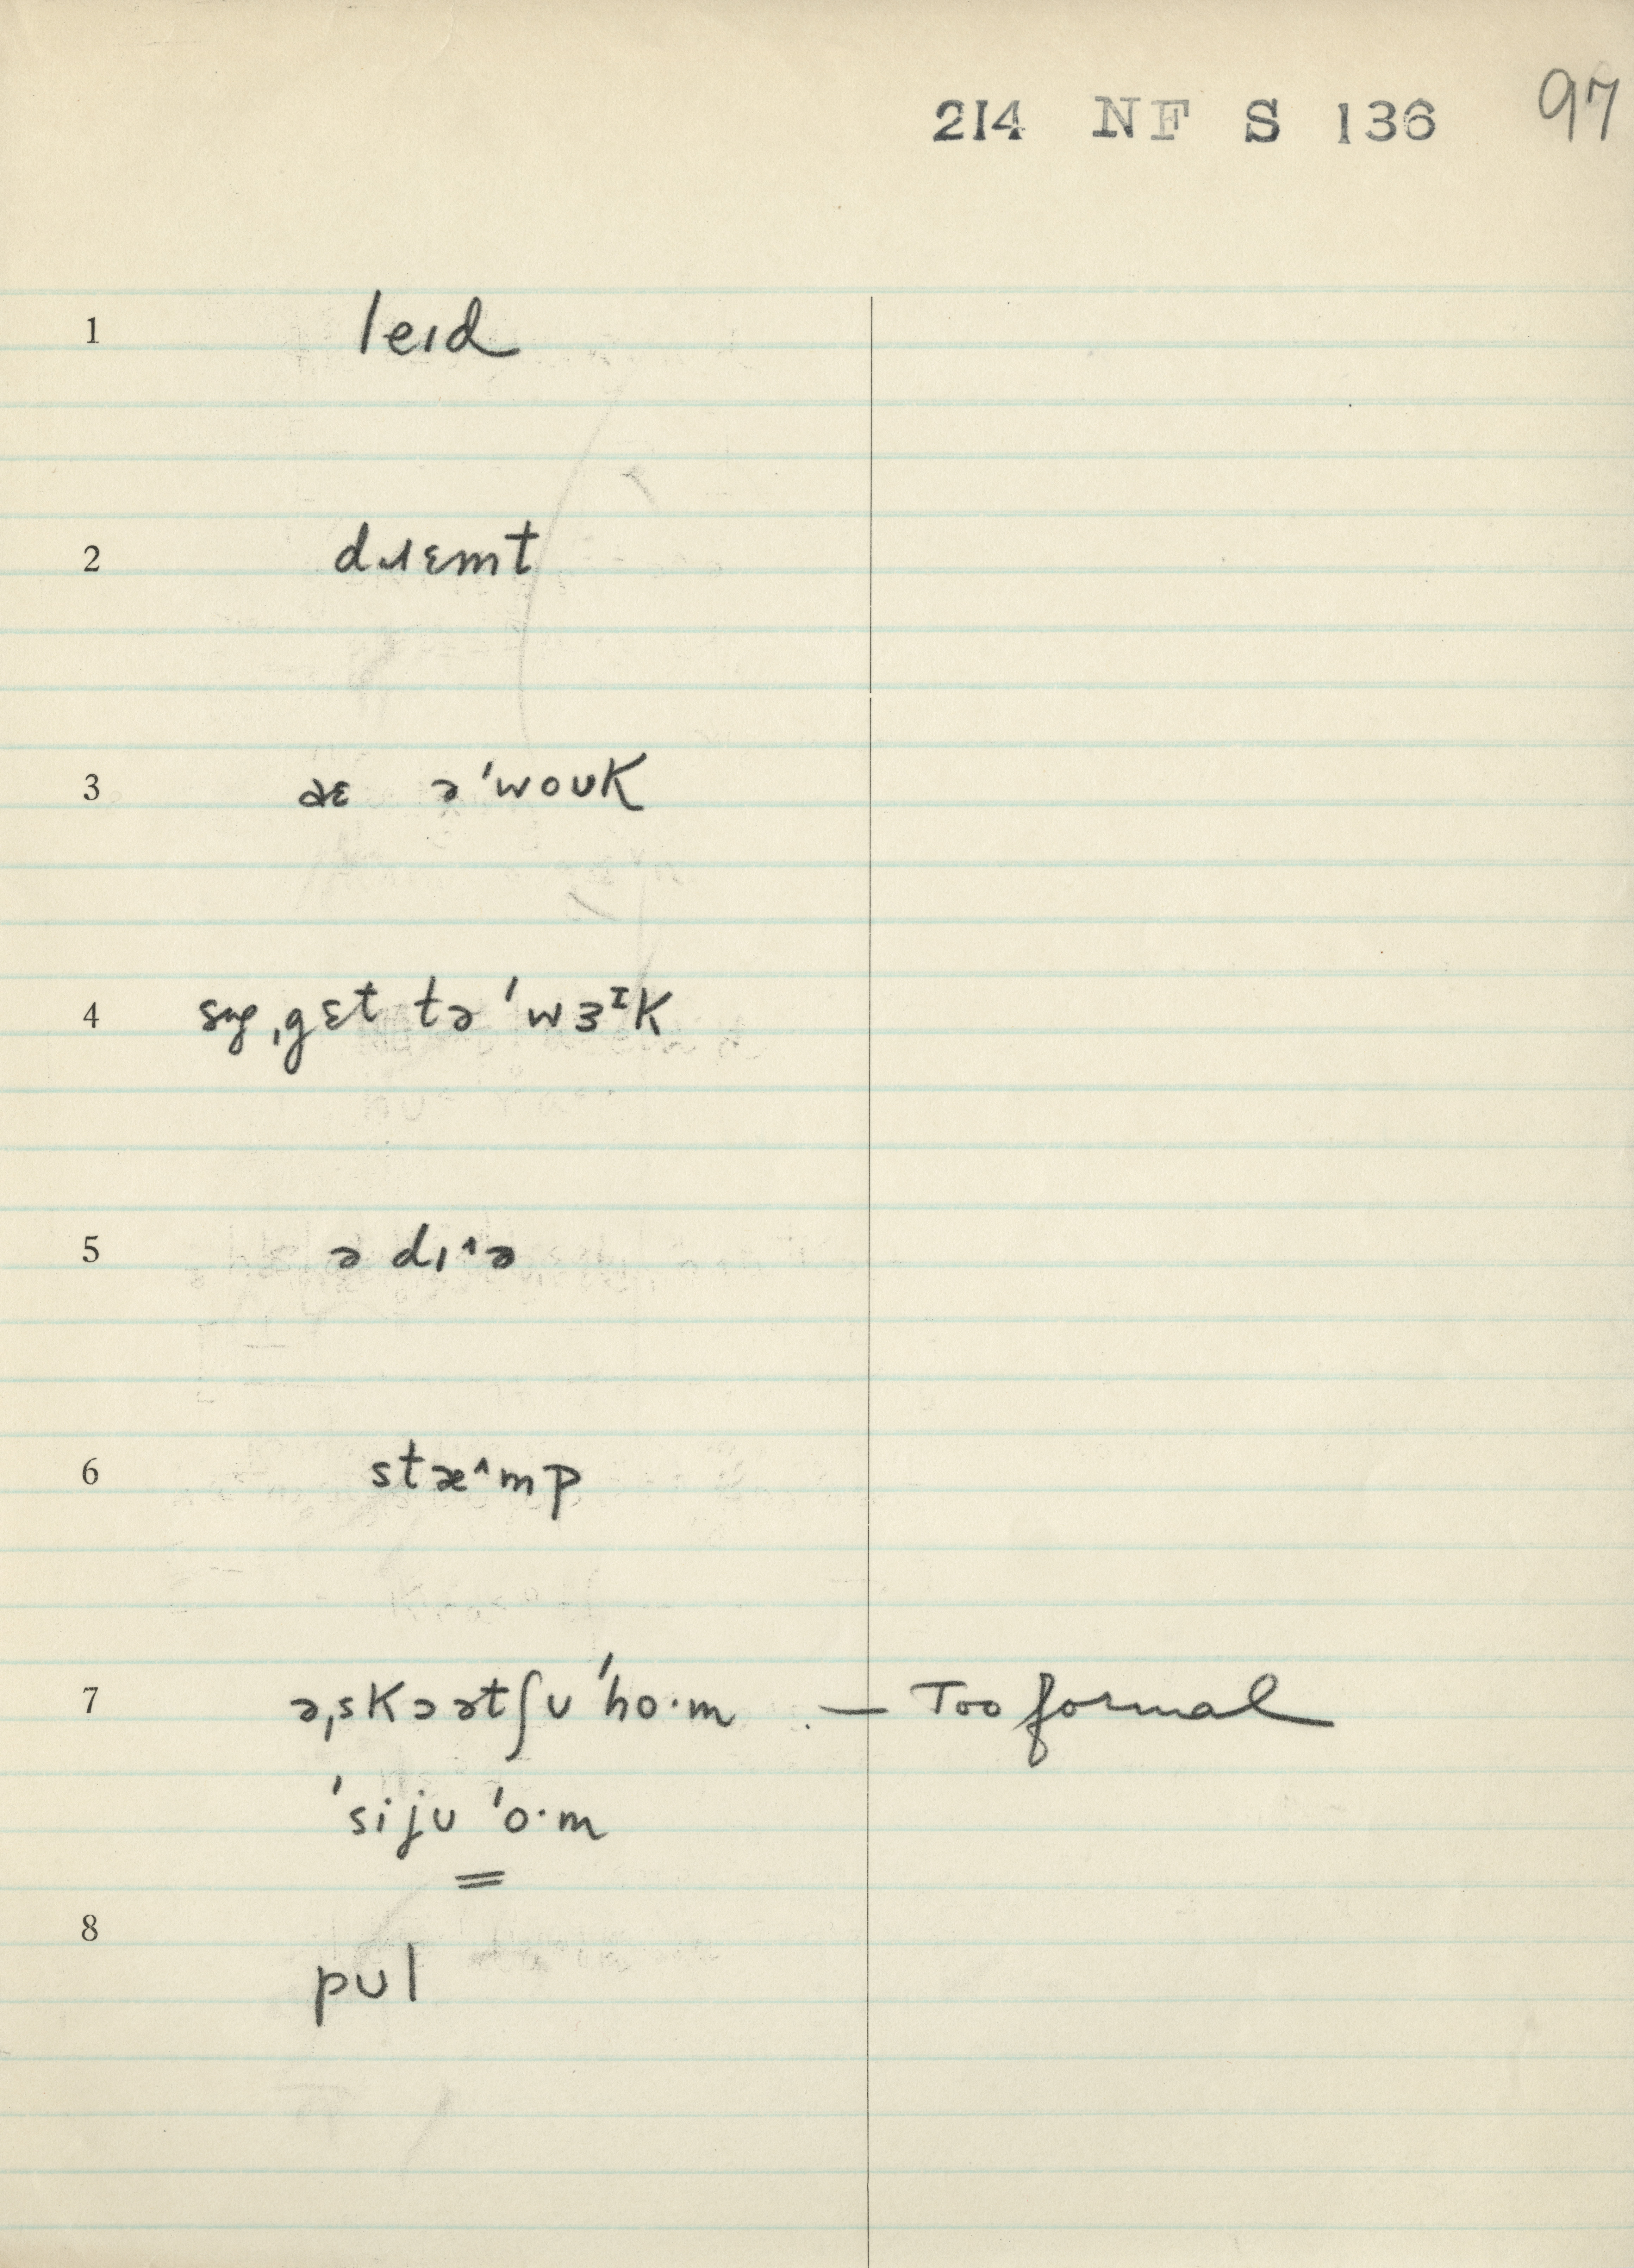 214 NF S 136 97
1 leɪd
2 dɹɛmt
3 əɛ ə'woʊK
4 sʌg ˌgɛt tə 'wɜᴵK
5 ə dɪ^ə
6 stæ^mp
7 əˌsKɔətʃʊ 'ho·m — Too formal
'sijʊ 'o·m
=
8 pʊl